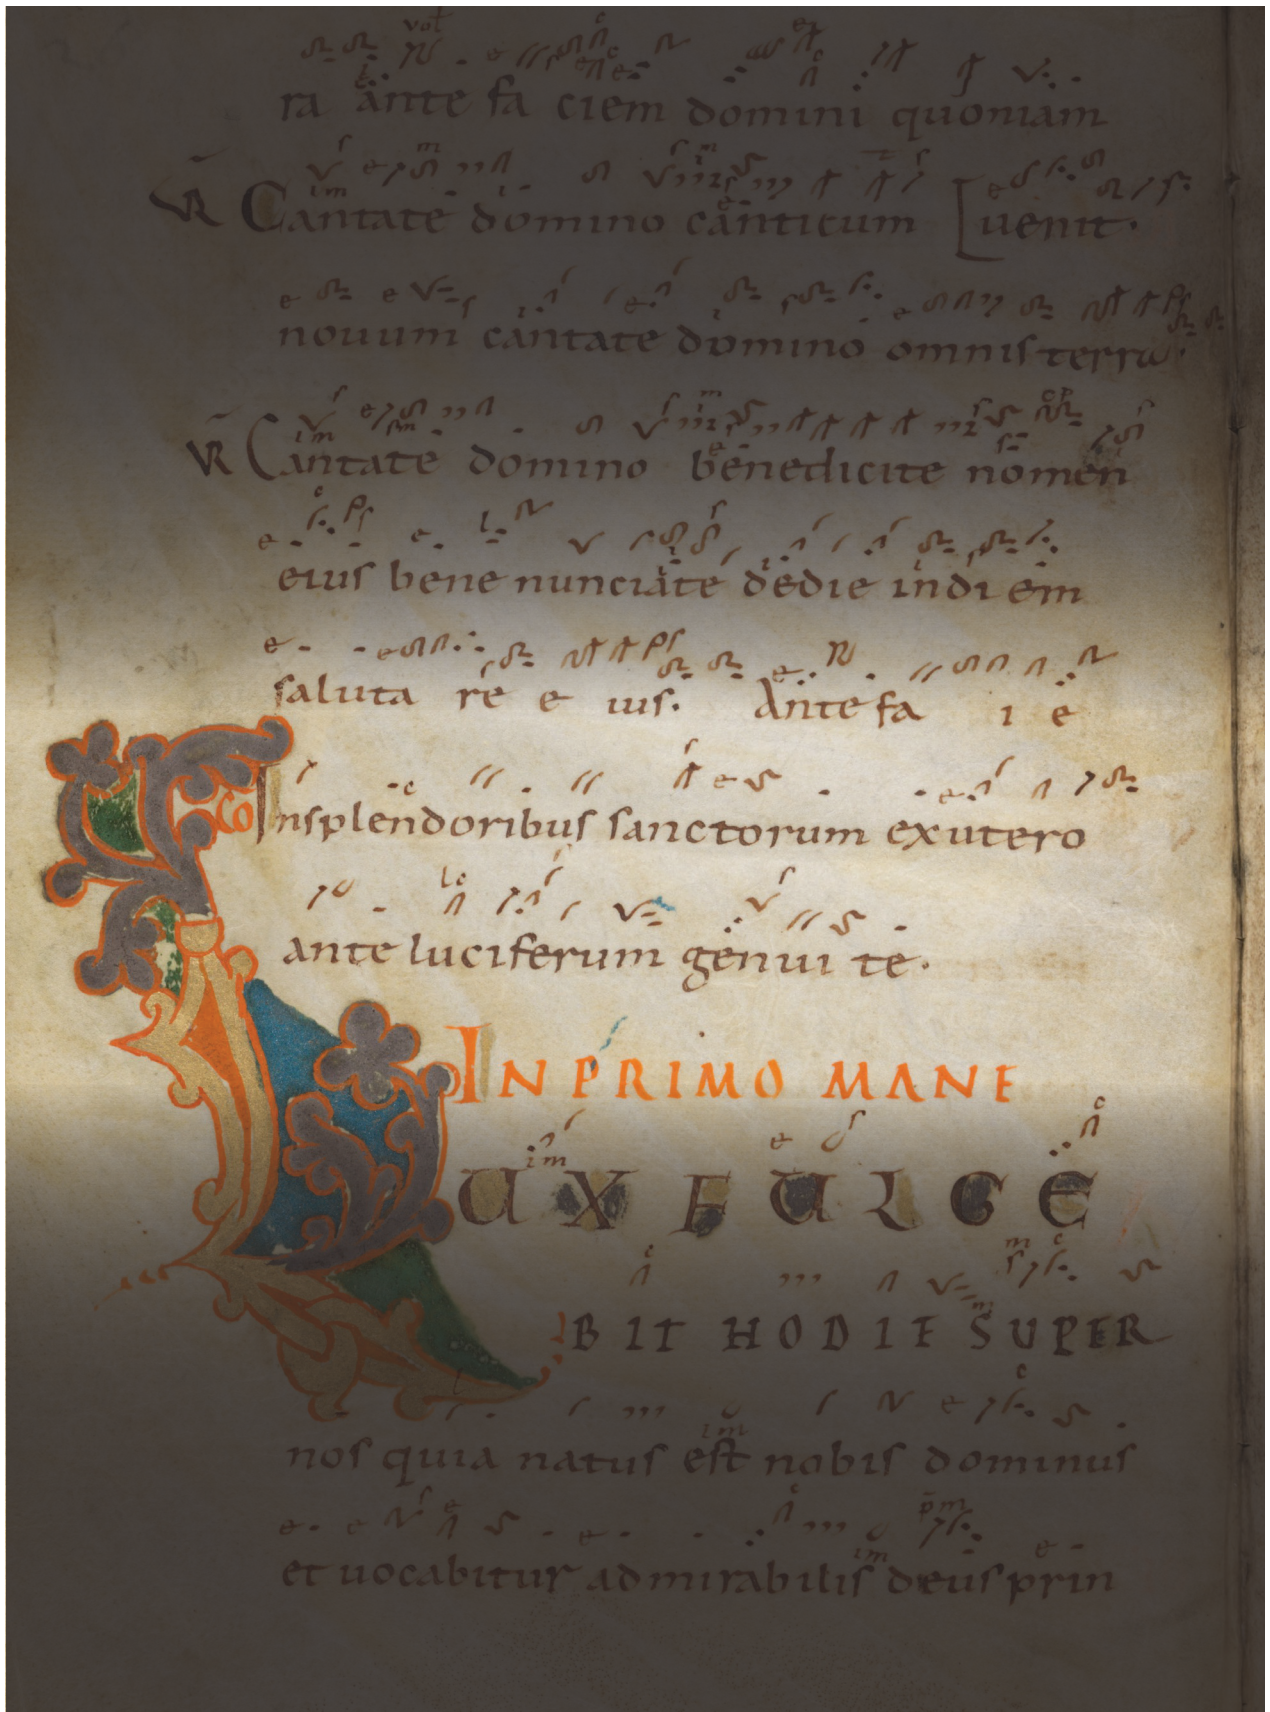 ra ante fa ciem domini quoniam
VR Cantate domino canticum [uenit.
nouum cantate domino omnis terra.
VR Cantate domino benedicite nomen
eius bene nunciate dedie indi em
saluta re e ius. Ante fa i e
CO Insplendoribus sanctorum exutero
ante luciferum genui te.
IN PRIMO MANE
LUX FULGE
BIT HODIE SUPER
nos quia natus est nobis dominus
et uocabitur admirabilis deus prin